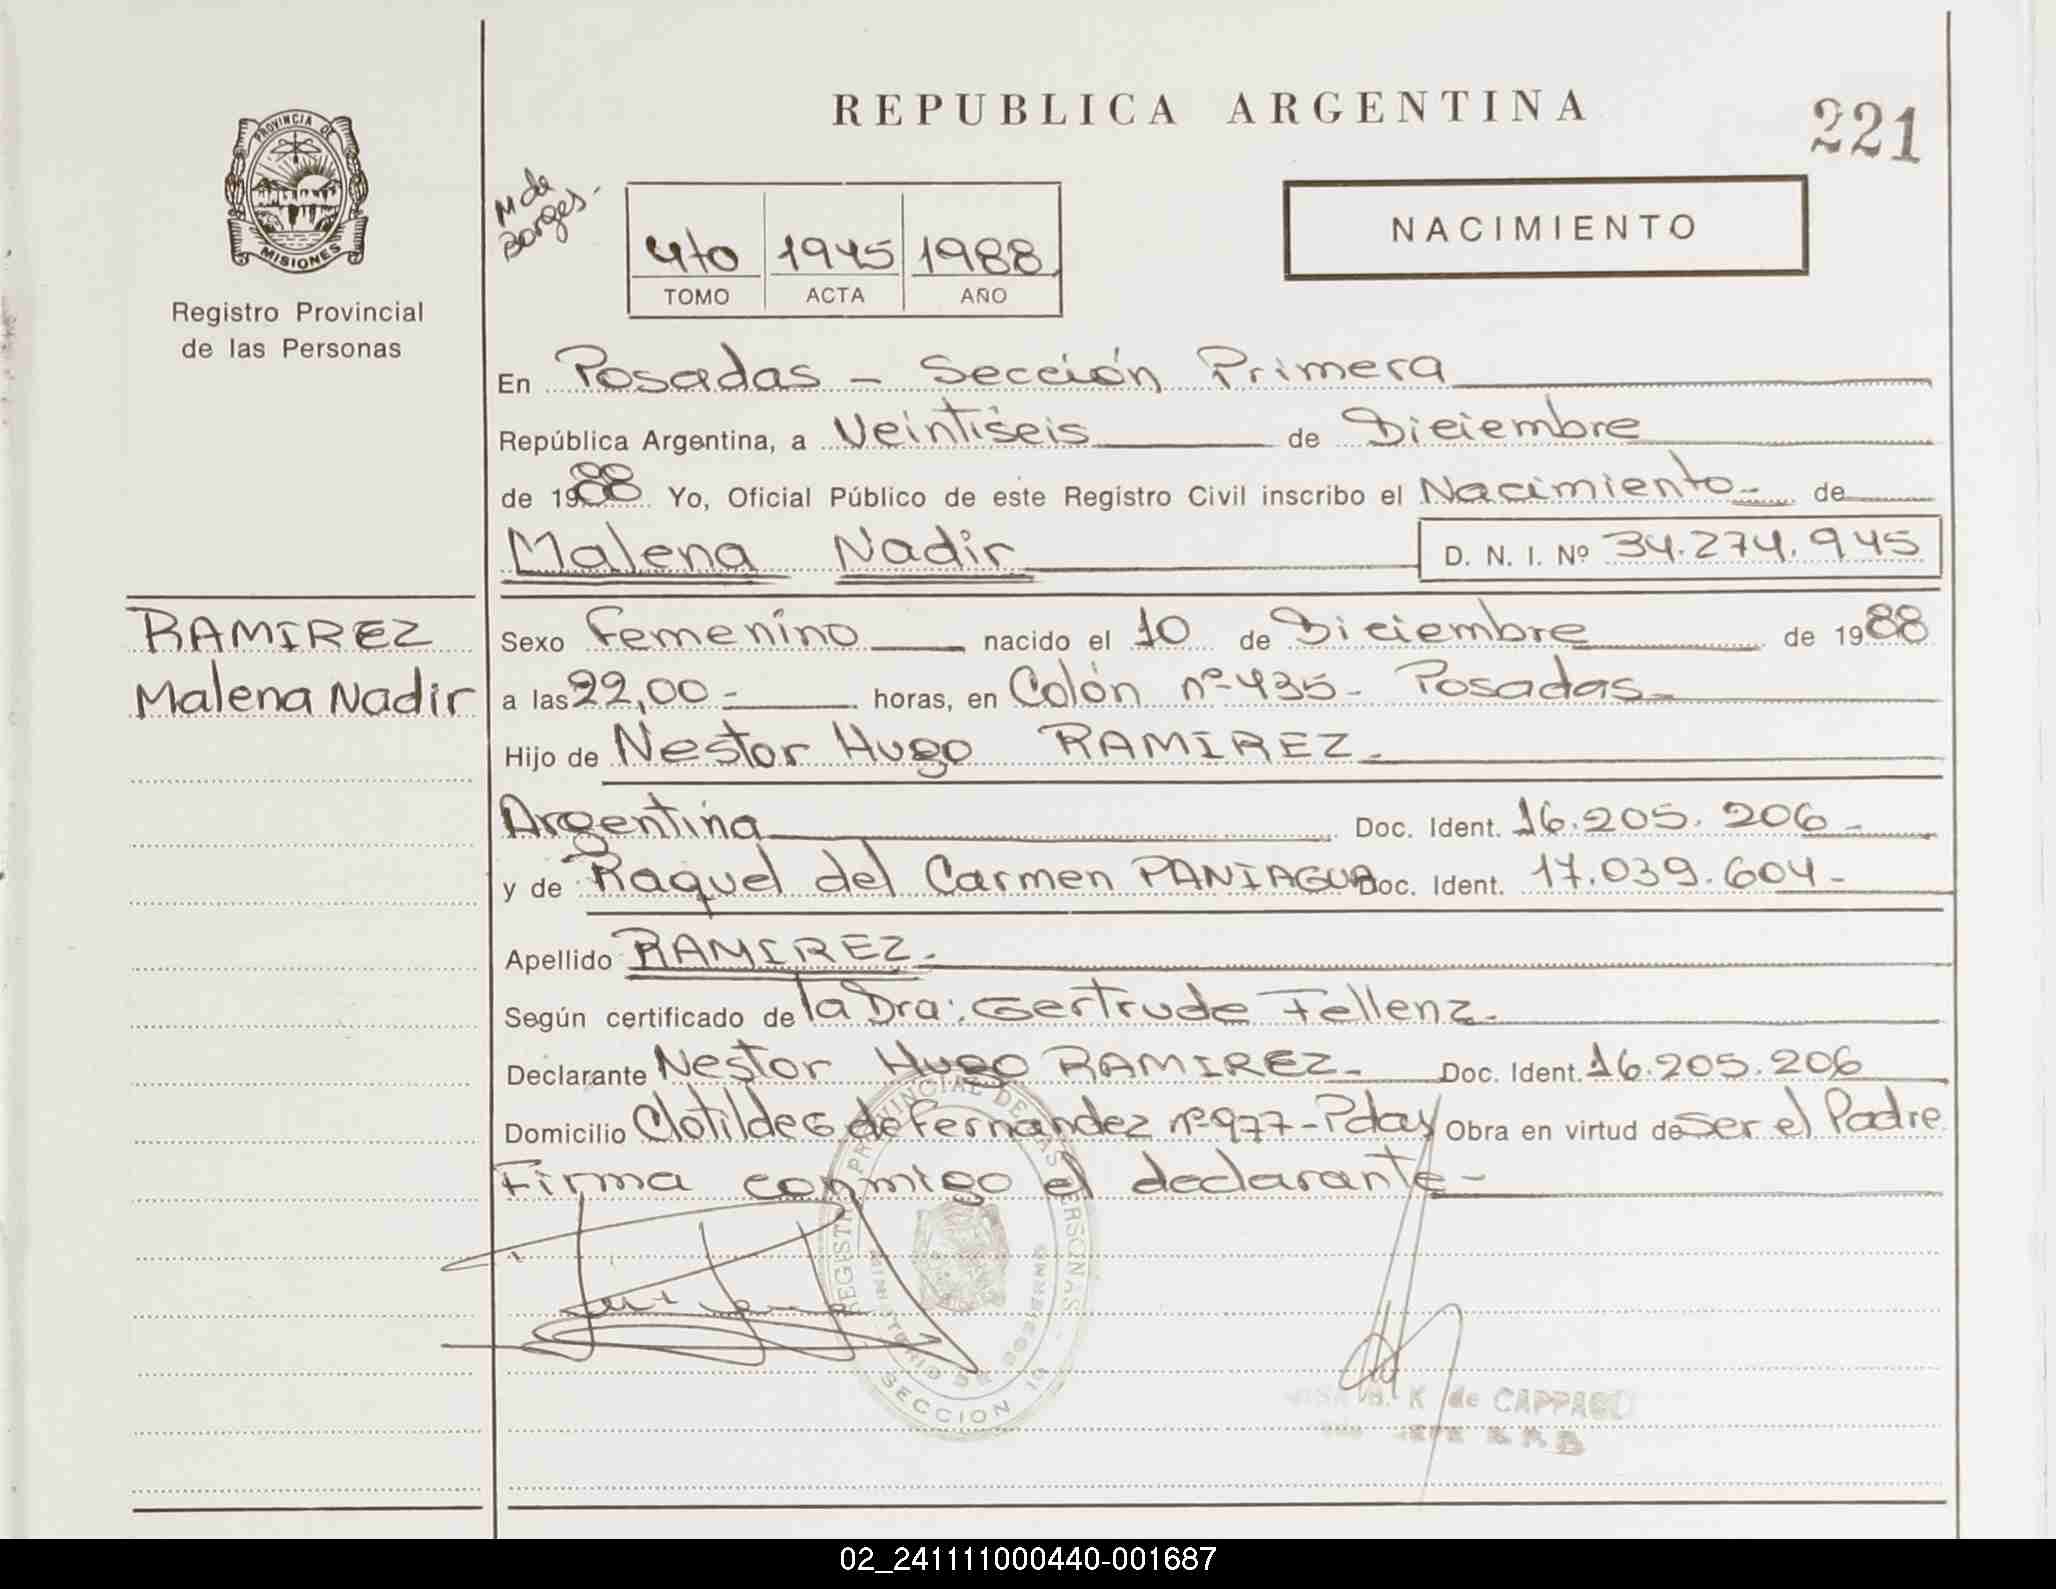 REPUBLICA ARGENTINA
221
PROVINCIA DE
MISIONES
Registro Provincial
de las Personas
M de
Borges-
4to 1945 1988
TOMO ACTA AÑO
NACIMIENTO
En Posadas - Sección Primera
República Argentina, a Veintiseis de Diciembre
de 1988 Yo, Oficial Público de este Registro Civil inscribo el Nacimiento- de
Malena Nadir D. N. I. Nº 34.274.945
RAMIREZ
Malena Nadir
Sexo Femenino nacido el 10 de Diciembre de 1988
a las 22,00- horas, en Colón nº 435- Posadas-
Hijo de Nestor Hugo RAMIREZ-
Argentina Doc. Ident. 16.205.206-
y de Raquel del Carmen PANIAGUA Doc. Ident. 17.039.604-
Apellido RAMIREZ-
Según certificado de la Dra: Gertrude Fellenz-
Declarante Nestor Hugo RAMIREZ- Doc. Ident. 16.205.206
Domicilio Clotildes de Fernandez nº 977-Pdas Obra en virtud de ser el Padre
Firma conmigo el declarante-
REGISTRO PROVINCIAL DE LAS PERSONAS
MINISTERIO DE GOBIERNO
SECCION
K de CAPPASO
02_241111000440-001687